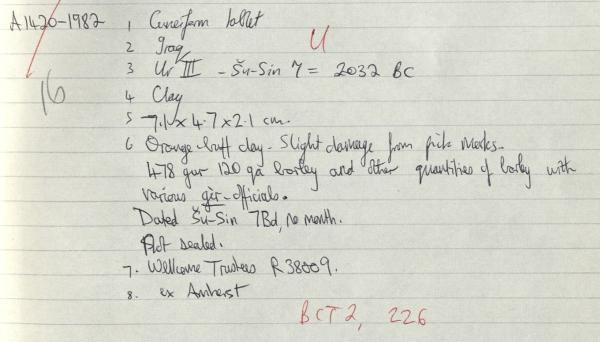 A1420-1982 1 Cuneiform tablet
2 Iraq
U
3 Ur III - Šu-Sin 7 = 2032 BC
4 Clay
16
5 7.1 x 4.7 x 2.1 cm.
6 Orange-buff clay - Slight damage from pick marks.
478 gur 120 qa barley and other quantities of barley with
various gìr-officials.
Dated Šu-Sin 7Bd, no month.
Not sealed.
7. Wellcome Trustees R38009.
8. ex Amherst
BCT 2, 226